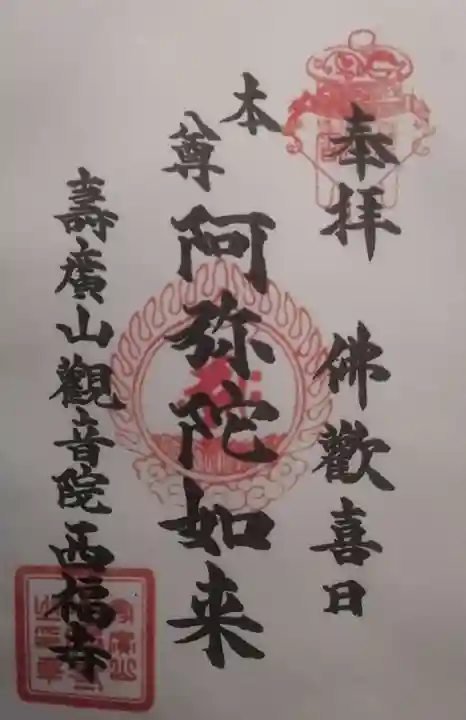 奉拝 佛歡喜日
本尊 阿弥陀如来
壽廣山觀音院西福寺